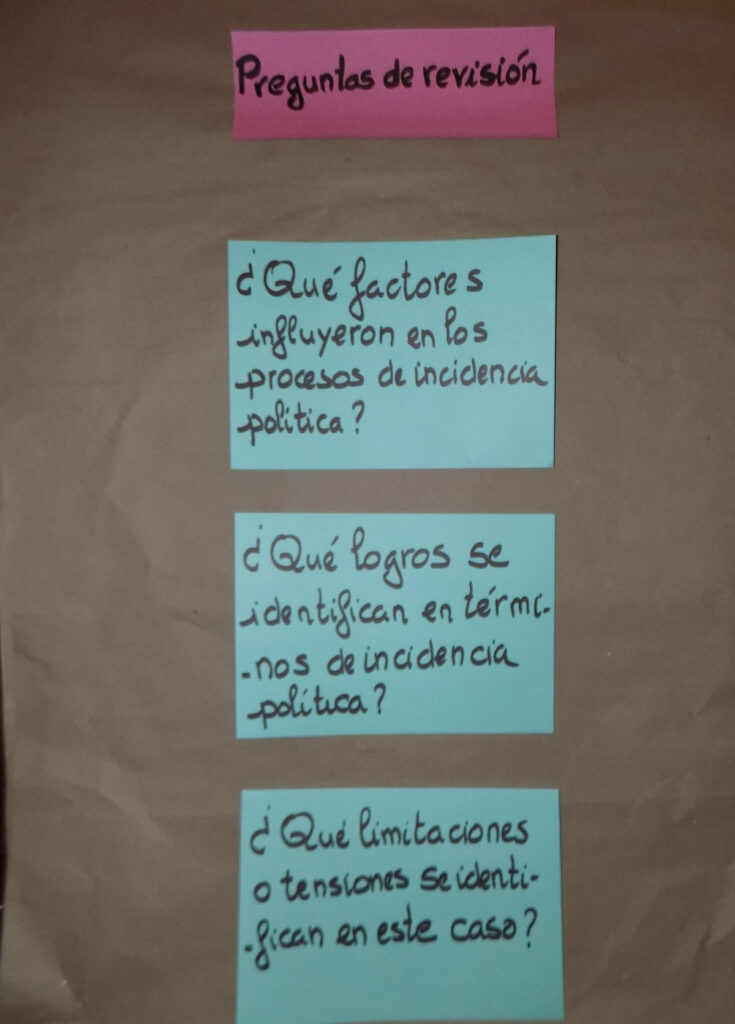 Preguntas de revisión
¿Qué factores
influyeron en los
procesos de incidencia
política?
¿Qué logros se
identifican en térmi-
-nos de incidencia
política?
¿Qué limitaciones
o tensiones se identi-
-fican en este caso?